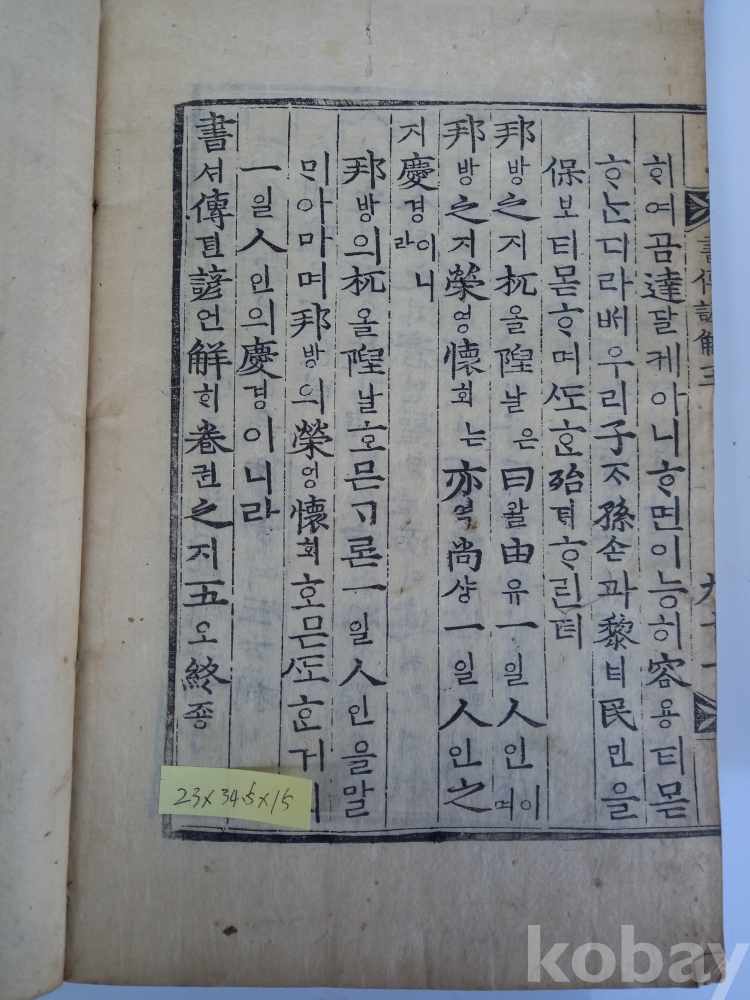 書傳諺解
ᄒᆡ여곰達달케아니ᄒᆞ면이능히容용티몯
ᄒᆞᄂᆞᆫ디라ᄡᅥ우리子ᄌᆞ孫손과黎려民민을
保보티몯ᄒᆞ며ᄯᅩᄒᆞᆫ殆ᄐᆡᄒᆞ린뎌
邦방之지杌올隉날은曰왈由유一일人인이며
邦방之지榮영懷회는亦역尙샹一일人인之
지慶경이니라
邦방의杌올隉날호믄ᄀᆞ론一일人인을말
ᄆᆡ아마며邦방의榮영懷회호믄ᄯᅩᄒᆞᆫ거
一일人인의慶경이니라
書셔傳뎐諺언解ᄒᆡ卷권之지五오終죵
23x34.5x15
kobay